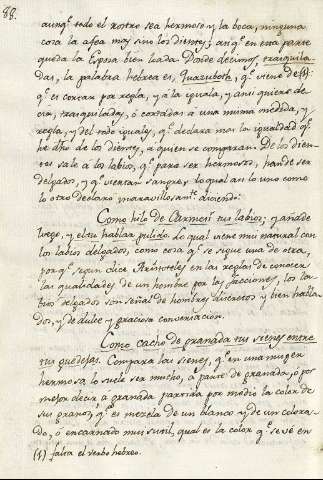 88.
aunq.e todo el rostro sea hermoso y la boca, ninguna
cosa la afea mas sino los dientes; asi q.e en esta parte
queda la Esposa bien loada. Donde decimos, trasquila-
das, la palabra hebrea es, Quazubote, q.e viene de (1):
q.e es cortar por regla, y á la iguala, y ansi quiere de-
cir, trasquiladas, ó cortadas á una misma medida, y
regla, y del todo iguales, q.e declara mas la igualdad q.e
he dho. de los dientes, á quien se comparan. De los dien-
tes sale á los labios, q.e para ser hermosos, han de ser
delgados, y q.e viertan sangre, lo qual asi lo uno como
lo otro declaró maravillosam.te diciendo:
Como hilo de Carmesí tus labios; y añade
luego, y el tu hablar pulido. Lo qual viene mui natural con
los labios delgados, como cosa q.e se sigue una de otra,
porq.e segun dice Aristoteles en las reglas de conocer
las qualidades de un hombre por las facciones, los la-
bios delgados son señal de hombres discretos y bien habla-
dos, y de dulce y graciosa conversacion.
Como cacho de granada tus sienes entre
tus guedejas. Compara las sienes, q.e en una muger
hermosa lo suele ser mucho, á parte de granada, ó por
mejor decir á granada partida por medio la color de
sus granos, q.e es mezcla de un blanco y de un colora-
do, ó encarnado mui sutil, qual es la color q.e se vé en
(1) falta el verbo hebreo.